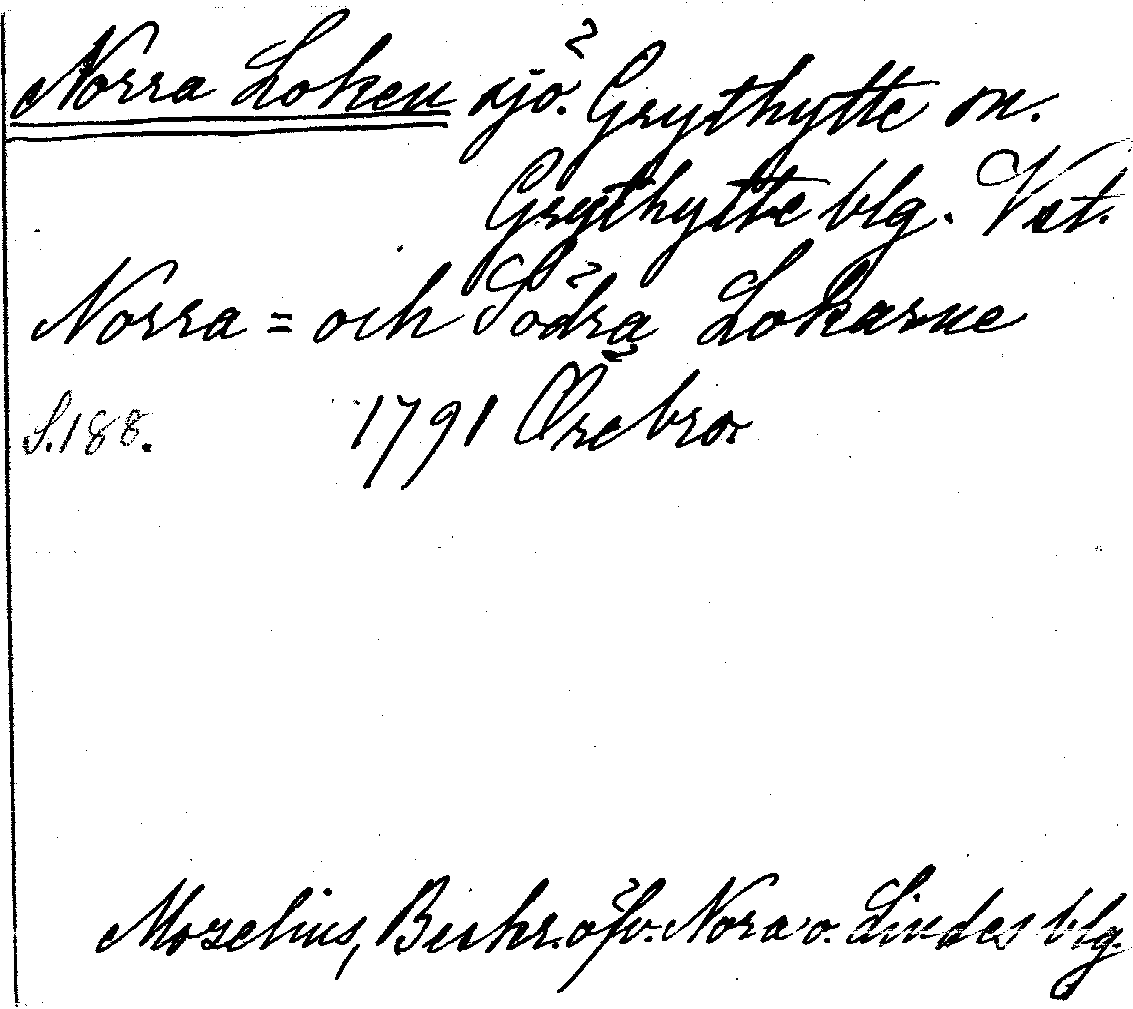 Norra Loken sjö. Grythytte sn.
Grythytte blg. Vstl.
Norra = och Södra Lokarne
S.188. 1791 Örebro.
Moselius, Beskr. öfv. Nora o. Lindes blg.